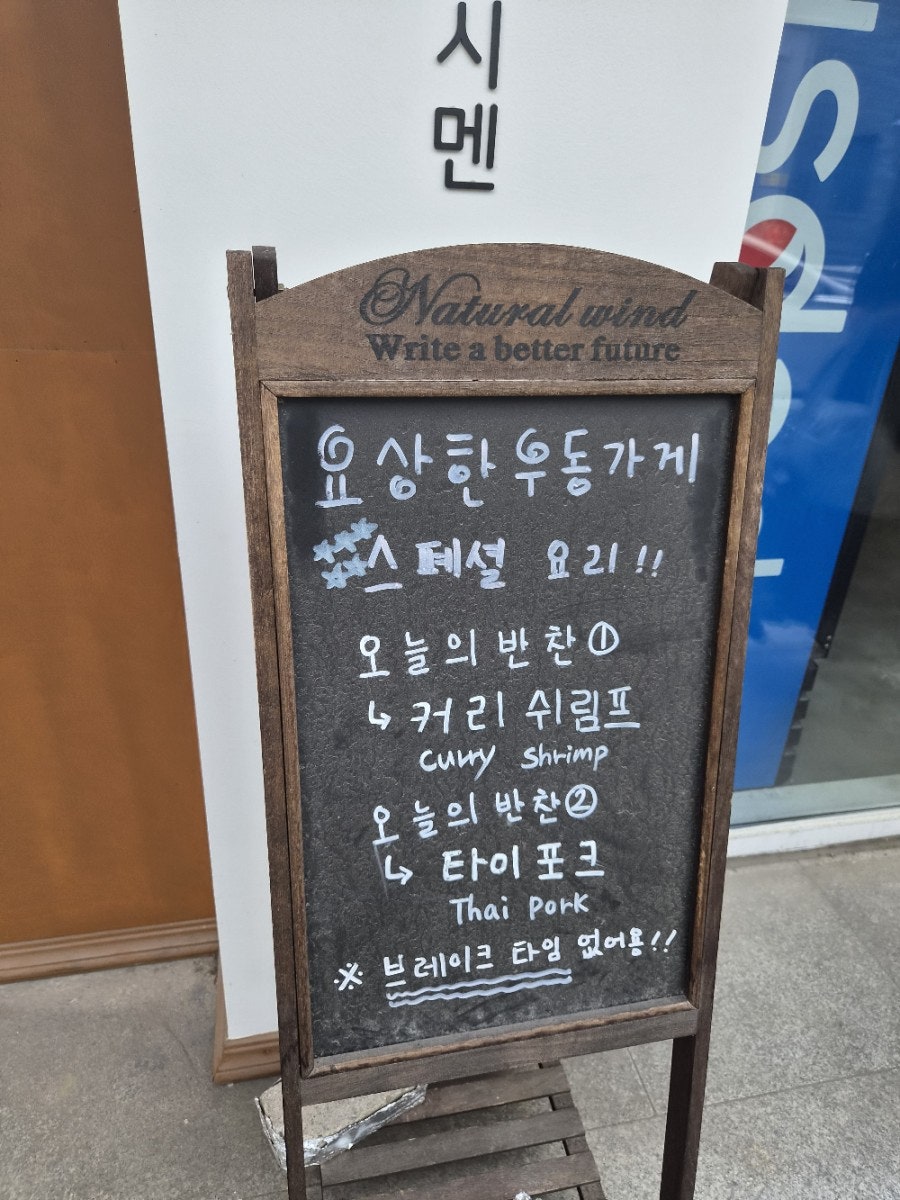 시
멘
Natural wind
Write a better future
요상한우동가게
스페셜 요리!!
오늘의 반찬①
↳ 커리 쉬림프
Curry Shrimp
오늘의 반찬②
↳ 타이 포크
Thai Pork
※ 브레이크 타임 없어용!!
pepsi